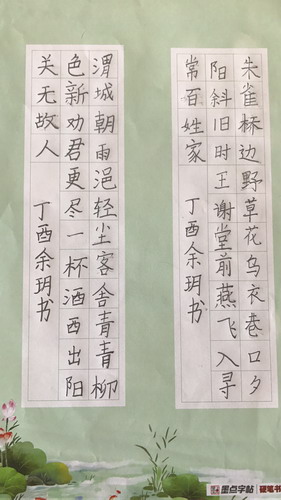 朱雀桥边野草花乌衣巷口夕
阳斜旧时王谢堂前燕飞入寻
常百姓家 丁酉余玥书
渭城朝雨浥轻尘客舍青青柳
色新劝君更尽一杯酒西出阳
关无故人 丁酉余玥书
墨点字帖 硬笔书